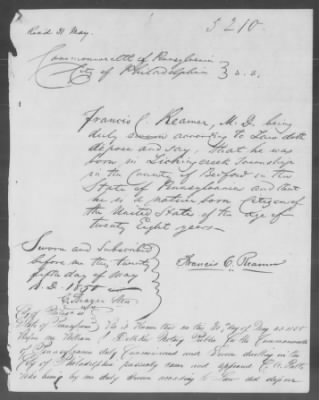 Recd 31 May.
5210.
Commonwealth of Pensylvania
City of Philadelphia } s.s.
Francis C. Reamer, M.D. being
duly sworn according to Law doth
depose and say, that he was
born in Licking creek Township
in the County of Bedford in the
State of Pennsylvania and that
he is a natural born Citizen of
the United State of the age of
twenty Eight years
Sworn and Subscribed
before me this twenty
fifth day of May
A.D. 1850
Francis C. Reamer
City of
State of
before me Notary Public for the Commonwealth
of Pennsylvania duly Commissioned and Sworn dwelling in the
City of Philadelphia personally came and appeared
who being by me duly sworn according to Law did depose